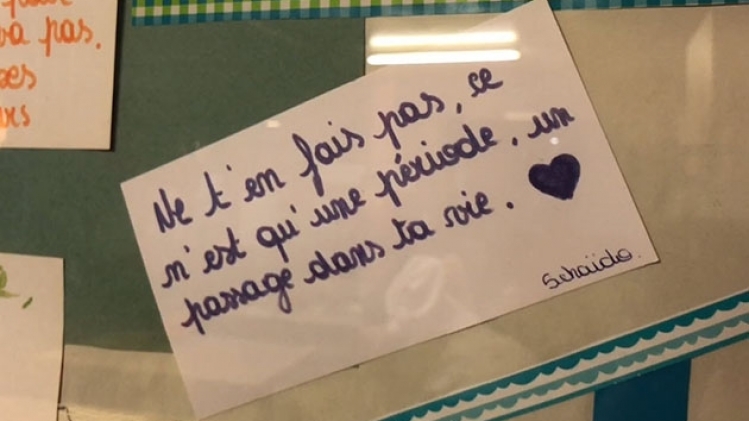 va pas.
Ne t'en fais pas, ce
n'est qu'une période, un
passage dans ta vie.
Schaïdo.